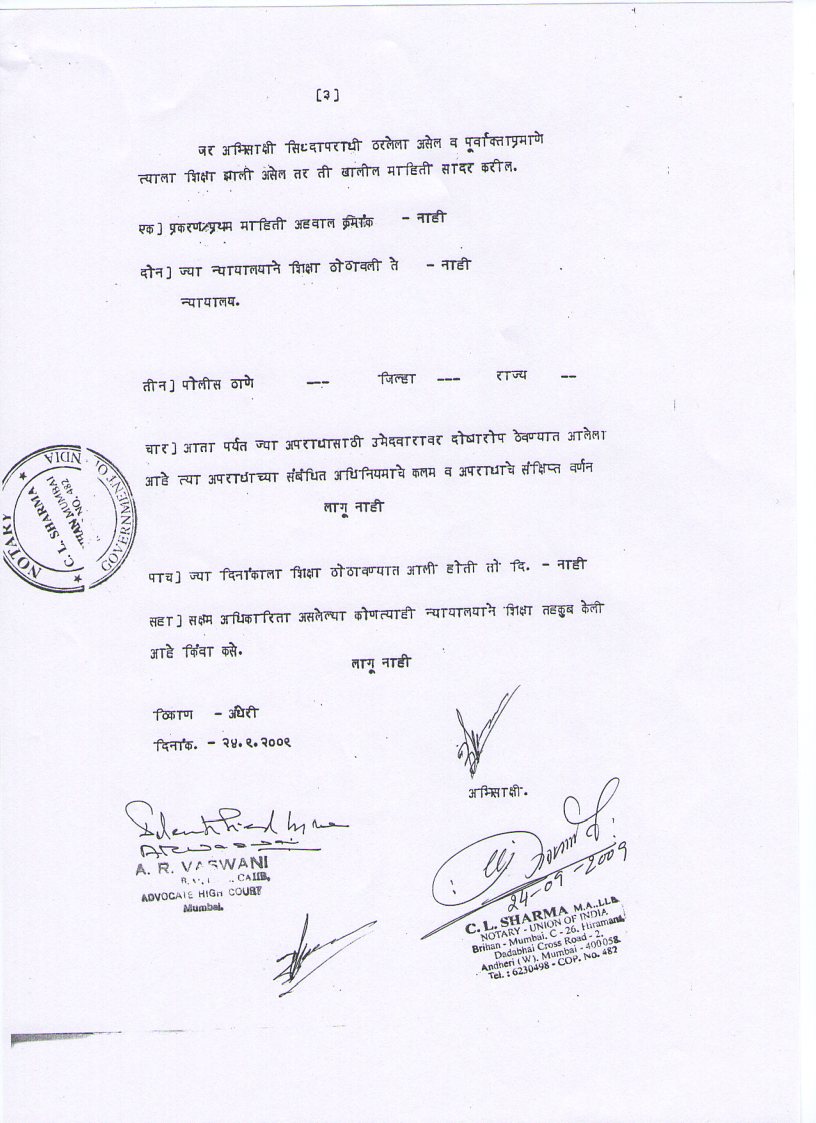 [३]
जर अभिसाक्षी सिध्दापराधी ठरलेला असेल व पूर्वोक्ताप्रमाणे
त्याला शिक्षा झाली असेल तर ती खालील माहिती सादर करील.
एक] प्रकरण/प्रथम माहिती अहवाल क्रमांक - नाही
दोन] ज्या न्यायालयाने शिक्षा ठोठावली ते - नाही
न्यायालय.
तीन] पोलीस ठाणे --- जिल्हा --- राज्य --
चार] आता पर्यंत ज्या अपराधासाठी उमेदवारावर दोषारोप ठेवण्यात आलेला
आहे त्या अपराधाच्या संबंधित अधिनियमाचे कलम व अपराधाचे संक्षिप्त वर्णन
लागू नाही
पाच] ज्या दिनांकाला शिक्षा ठोठावण्यात आली होती तो दि. - नाही
सहा] सक्षम अधिकारिता असलेल्या कोणत्याही न्यायालयाने शिक्षा तहकुब केली
आहे किंवा कसे.
लागू नाही
ठिकाण - अंधेरी
दिनांक. - २४.९.२००९
अभिसाक्षी.
NOTARY
GOVERNMENT OF INDIA
C. L. SHARMA
MUMBAI
NO. 482
A. R. VASWANI
ADVOCATE HIGH COURT
Mumbai.
24-09-2009
C. L. SHARMA M.A., LLB
NOTARY - UNION OF INDIA
Brihan - Mumbai. C - 26, Hiramani,
Dadabhai Cross Road - 2.
Andheri (W). Mumbai - 400058.
Tel. : 6230498 - COP. No. 482